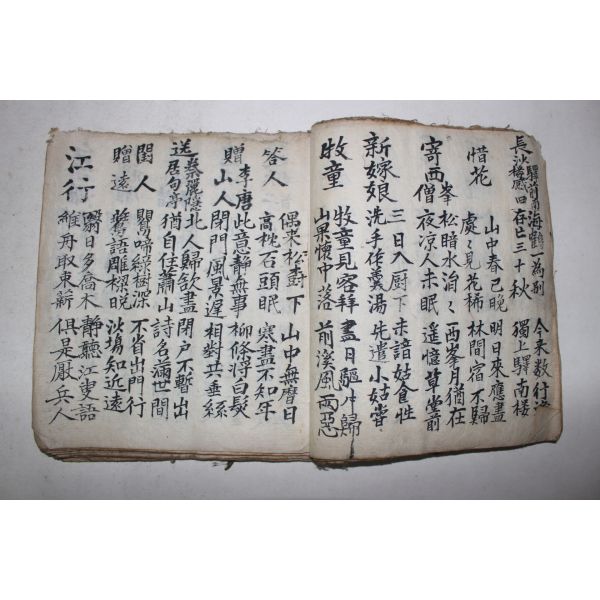 海鶴一為別 今來數行
存亡三十秋 獨上驛南樓
惜花
山中春已晚 明日來應盡
處〻見花稀 林間宿不歸
寄西峯僧
松暗水涓〻 西峯月猶在
夜凉人未眠 遥憶草堂前
新嫁娘
三日入厨下 未諳姑食性
洗手作羹湯 先遣小姑嘗
牧童
牧童見客拜 盡日驅牛歸
山果懷中落 前溪風雨惡
答人
偶來松树下 山中無曆日
高枕石頭眠 寒盡不知年
贈李唐山人
此意靜無事 柳條將白髮
閉門風景遲 相對共垂絲
送
北人歸欲盡 閉户不暫出
猶自住蕭山 詩名滿世間
閨人贈遠
鸎啼綠樹深 不省出門行
鷰語雕樑晚 沙場知近遠
江行
翳日多喬木 靜聽江叟語
維舟取束薪 俱是厭兵人